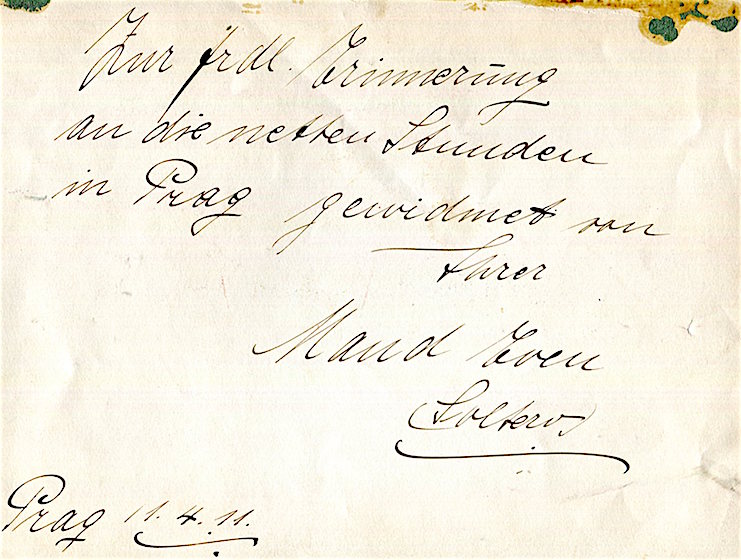 Zur frdl. Erinnerung
an die netten Stunden
in Prag gewidmet von
Ihrer
Maud
Prag 11.4.11.